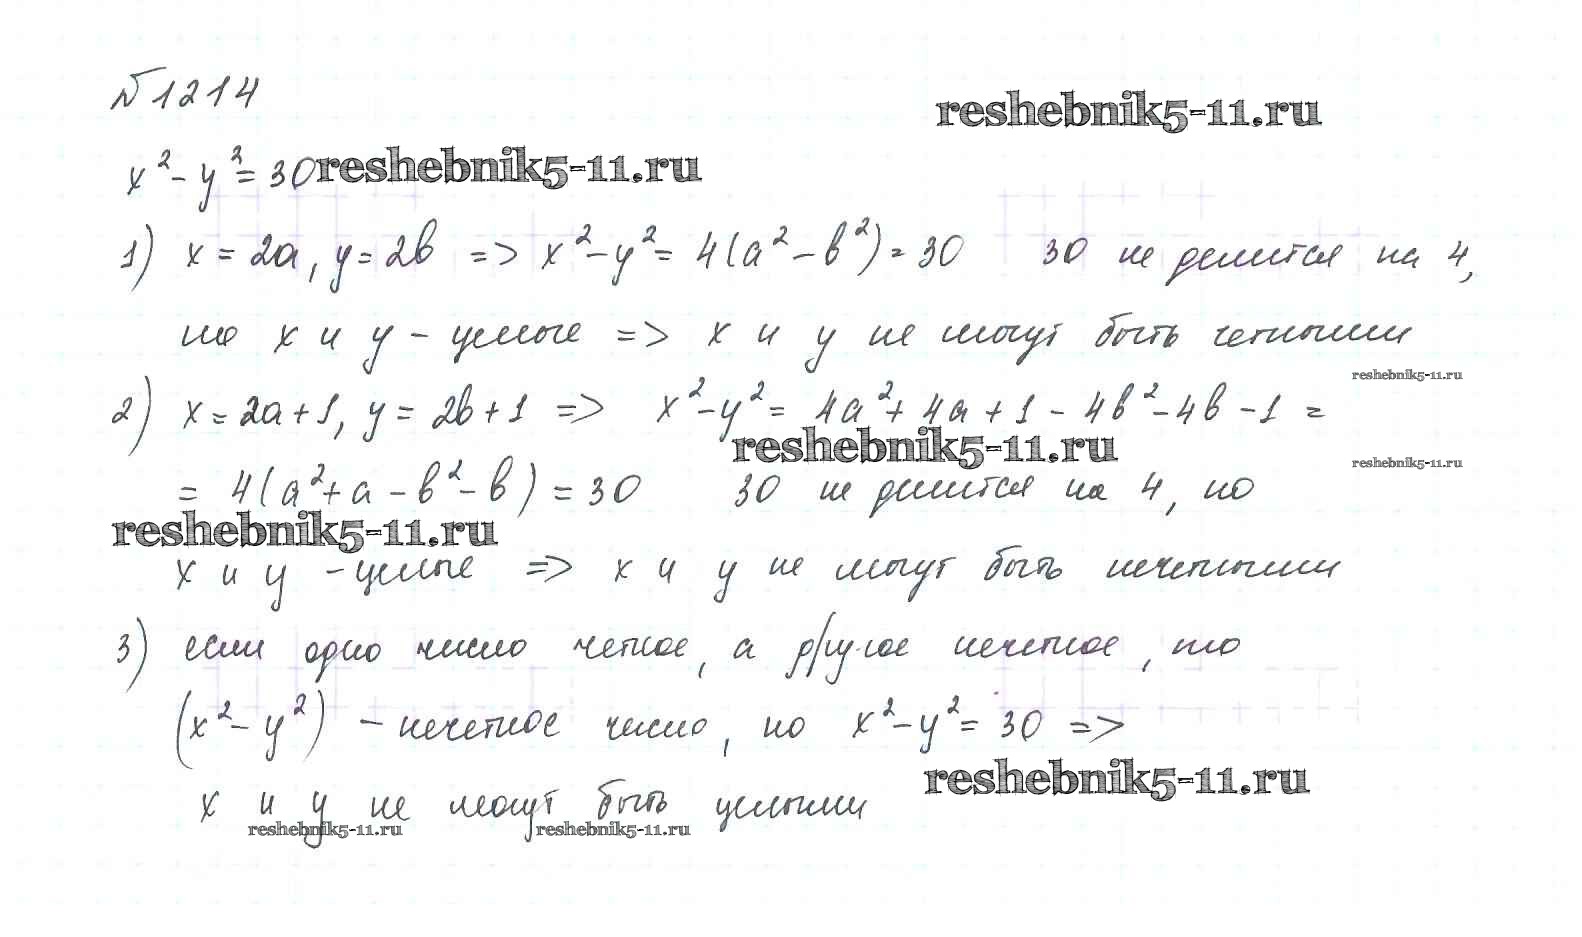 №1214
reshebnik5-11.ru
x² - y² = 30 reshebnik5-11.ru
1) x = 2a, y = 2b => x² - y² = 4(a² - b²) = 30 30 не делится на 4,
но x и y - целые => x и y не могут быть четными
reshebnik5-11.ru
2) x = 2a + 1, y = 2b + 1 => x² - y² = 4a² + 4a + 1 - 4b² - 4b - 1 =
reshebnik5-11.ru
reshebnik5-11.ru
= 4(a² + a - b² - b) = 30 30 не делится на 4, но
reshebnik5-11.ru
x и y - целые => x и y не могут быть нечетными
3) если одно число четное, а другое нечетное, то
(x² - y²) - нечетное число, но x² - y² = 30 =>
reshebnik5-11.ru
x и y не могут быть целыми
reshebnik5-11.ru reshebnik5-11.ru